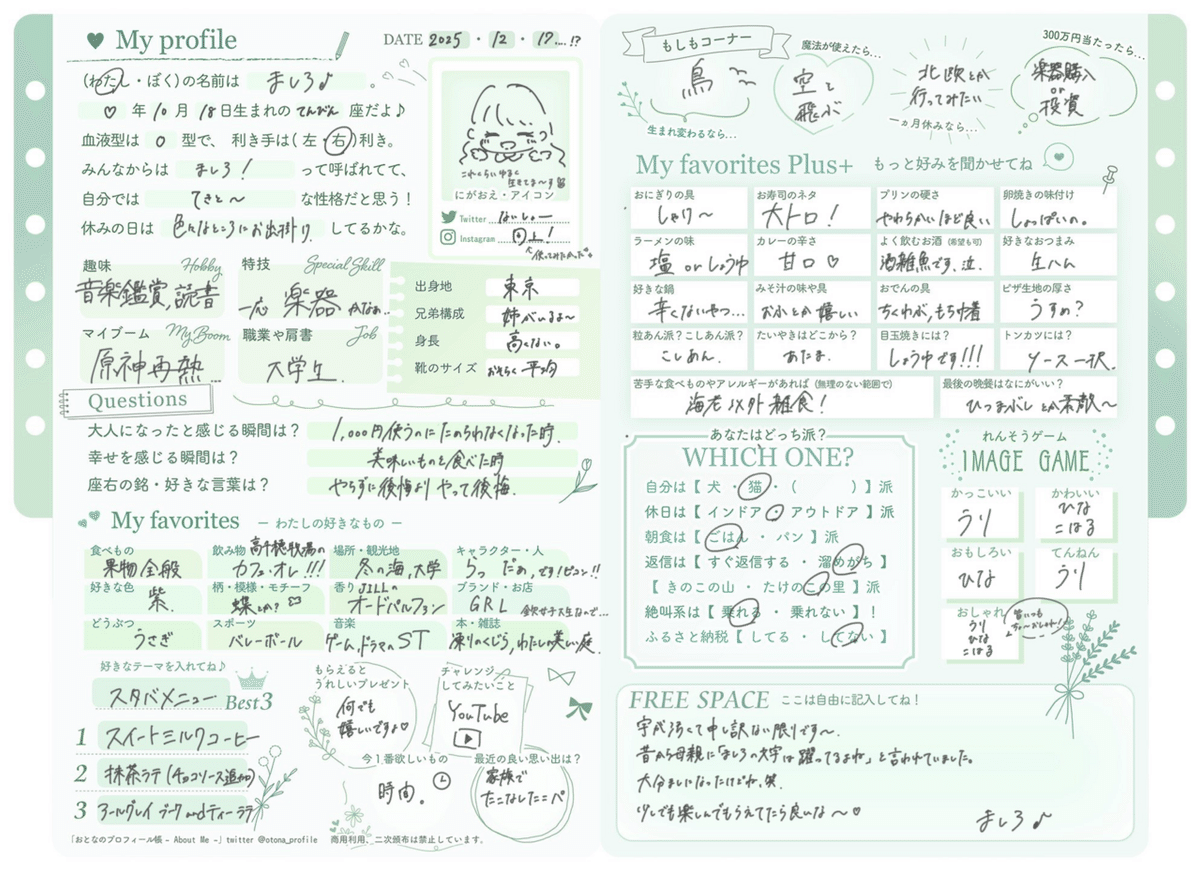 My profile
DATE 2025 ・ 12 ・ 17....!?
(わたし・ぼく)の名前は ましろ♪ 。
♡ 年 10 月 18 日生まれの てんびん 座だよ♪
血液型は O 型で、 利き手は( 左・右 )利き。
みんなからは ましろ! って呼ばれてて、
自分では てきと〜 な性格だと思う!
休みの日は 色んなところにお出掛け してるかな。
これくらいゆるく
生きてま〜す
にがおえ・アイコン
Twitter ないしょー
Instagram 同上!
趣味 Hobby
音楽鑑賞,読書
特技 Special Skill
一応 楽器 かなぁ..
マイブーム My Boom
原神再熱...
職業や肩書 Job
大学生.
出身地 東京
兄弟構成 姉がいるよ〜
身長 高くない。
靴のサイズ おそらく平均
Questions
大人になったと感じる瞬間は? 1,000円使うのにためらわなくなった時.
幸せを感じる瞬間は? 美味しいものを食べた時
座右の銘・好きな言葉は? やらずに後悔よりやって後悔.
My favorites ー わたしの好きなもの ー
食べもの 果物全般
飲み物 高千穂牧場のカフェ・オレ!!!
場所・観光地 冬の海,大学
キャラクター・人 らっだぁ,です!ピコン!!
好きな色 紫.
柄・模様・モチーフ 蝶とか?
香り JILLのオードパルファン
ブランド・お店 GRL
どうぶつ うさぎ
スポーツ バレーボール
音楽 ゲーム,ドラマのST
本・雑誌 凍りのくじら,わたしの美しい庭.
好きなテーマを入れてね♪
スタバメニュー Best3
1 スイートミルクコーヒー
2 抹茶ラテ(チョコソース追加)
3 アールグレイ ブーケ and ティーラテ
もらえると
うれしいプレゼント
何でも
嬉しいですよ♡
チャレンジ
してみたいこと
YouTube
今1番欲しいもの
時間。
最近の良い思い出は?
家族で
たこなしたこパ
「おとなのプロフィール帳 - About Me -」twitter @otona_profile 商用利用、二次頒布は禁止しています。
もしもコーナー
鳥
生まれ変わるなら...
魔法が使えたら...
空を
飛ぶ
北欧とか
行ってみたい
一ヵ月休みなら...
300万円当たったら...
楽器購入
or
投資
My favorites Plus+ もっと好みを聞かせてね
おにぎりの具 しゃけ〜
お寿司のネタ 大トロ!
プリンの硬さ やわらかいほど良い
卵焼きの味付け しょっぱいの。
ラーメンの味 塩 or しょうゆ
カレーの辛さ 甘口♡
よく飲むお酒 (希望も可) 酒雑魚です,泣.
好きなおつまみ 生ハム
好きな鍋 辛くないやつ...
みそ汁の味や具 おふとか嬉しい
おでんの具 ちくわぶ,もち巾着
ピザ生地の厚さ うすめ?
粒あん派?こしあん派? こしあん.
たいやきはどこから? あたま.
目玉焼きには? しょうゆです!!!
トンカツには? ソース一択.
苦手な食べものやアレルギーがあれば (無理のない範囲で) 海老以外雑食!
最後の晩餐はなにがいい? ひつまぶしとか素敵〜
あなたはどっち派?
WHICH ONE?
自分は【 犬 ・ 猫 ・ ( ) 】派
休日は【 インドア ・ アウトドア 】派
朝食は【 ごはん ・ パン 】派
返信は【 すぐ返信する ・ 溜めがち 】
【 きのこの山 ・ たけのこの里 】派
絶叫系は【 乗れる ・ 乗れない 】!
ふるさと納税【 してる ・ してない 】
れんそうゲーム
IMAGE GAME
かっこいい うり
かわいい ひな こはる
おもしろい ひな
てんねん うり
おしゃれ うり ひな こはる
皆いつも
FREE SPACE ここは自由に記入してね!
字が汚くて申し訳ない限りです〜.
昔から母親に「ましろの文字は踊ってるよね」と言われていました。
大分ましになったけどね,笑.
少しでも楽しんでもらえてたら良いな〜♡
ましろ♪